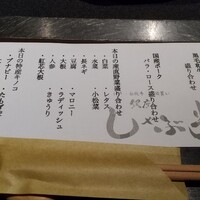 黒毛和牛
盛り合わせ
国産ポーク
バラ・ロース盛り合わせ
本日の産直野菜盛り合わせ
・白菜　・レタス
・水菜　・小松菜
・長ネギ
・豆腐　・マロニー
・大根　・ラディッシュ
・人参　・きゅうり
・紅芯大根
本日の特産キノコ
・ブナピー
しゃぶ